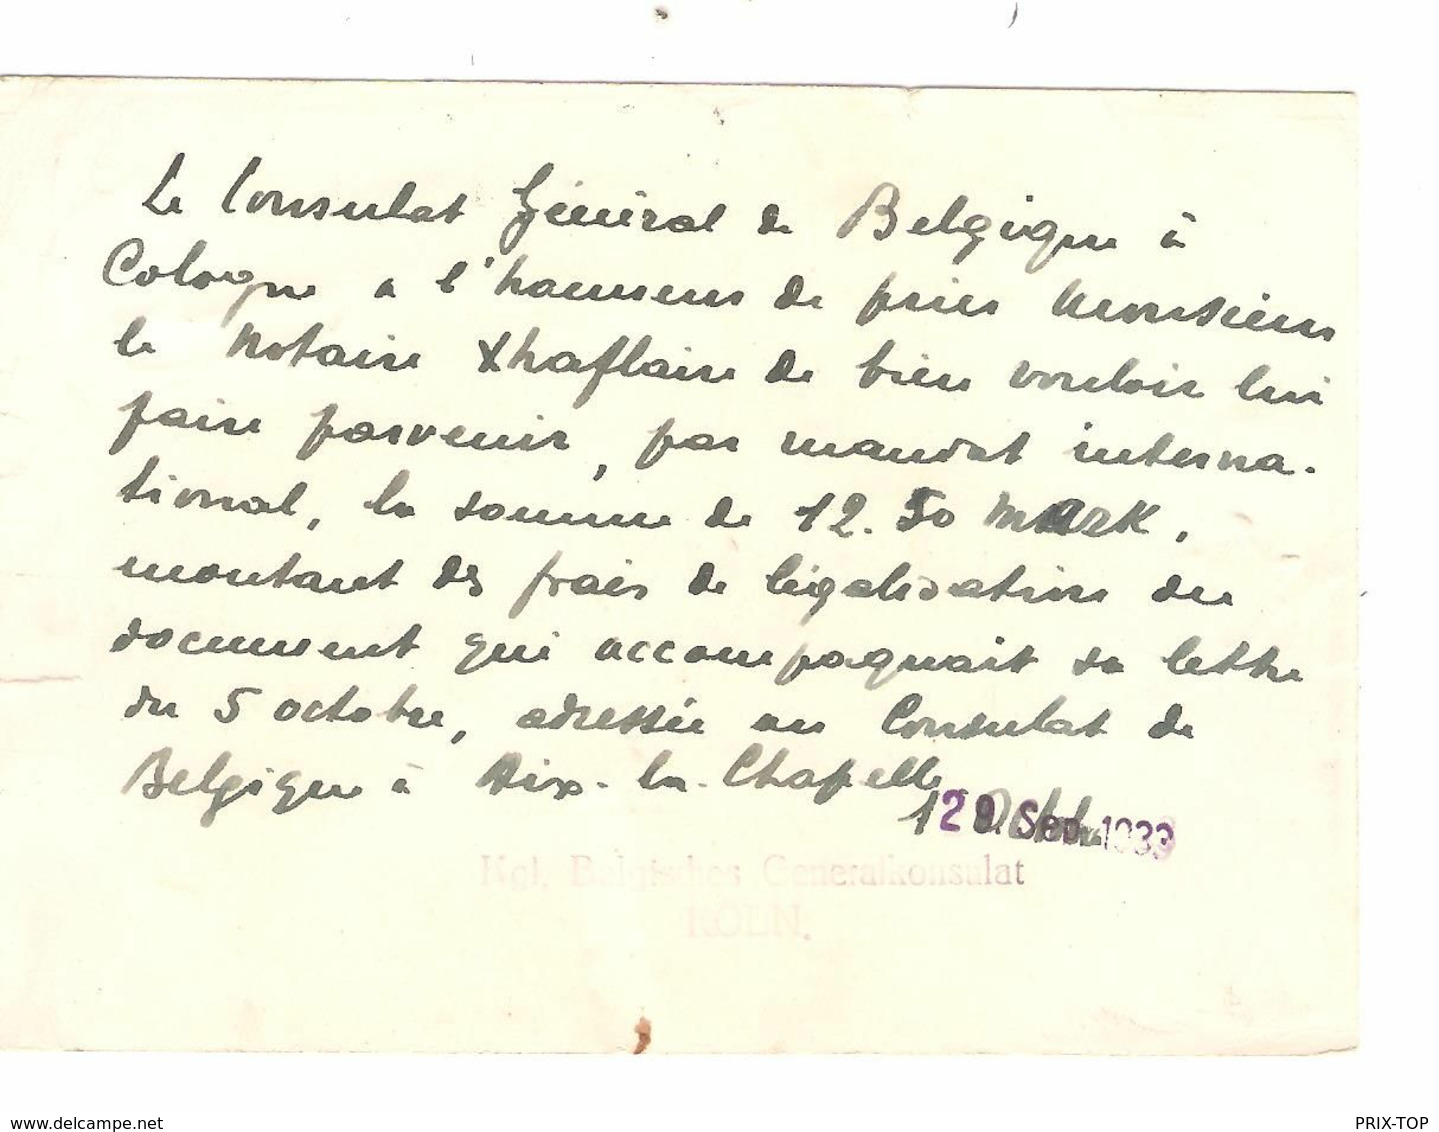 Le Consulat Général de Belgique à
Cologne a l'honneur de prier Monsieur
le Notaire Xhaflaire de bien vouloir lui
faire parvenir, par mandat interna-
tional, la somme de 12.50 mark,
montant des frais de légalisation du
document qui accompagnait sa lettre
du 5 octobre, adressée au Consulat de
Belgique à Aix-la-Chapelle
29. Sep. 1933
Kgl. Belgisches Generalkonsulat
KÖLN.
www.delcampe.net
PRIX-TOP